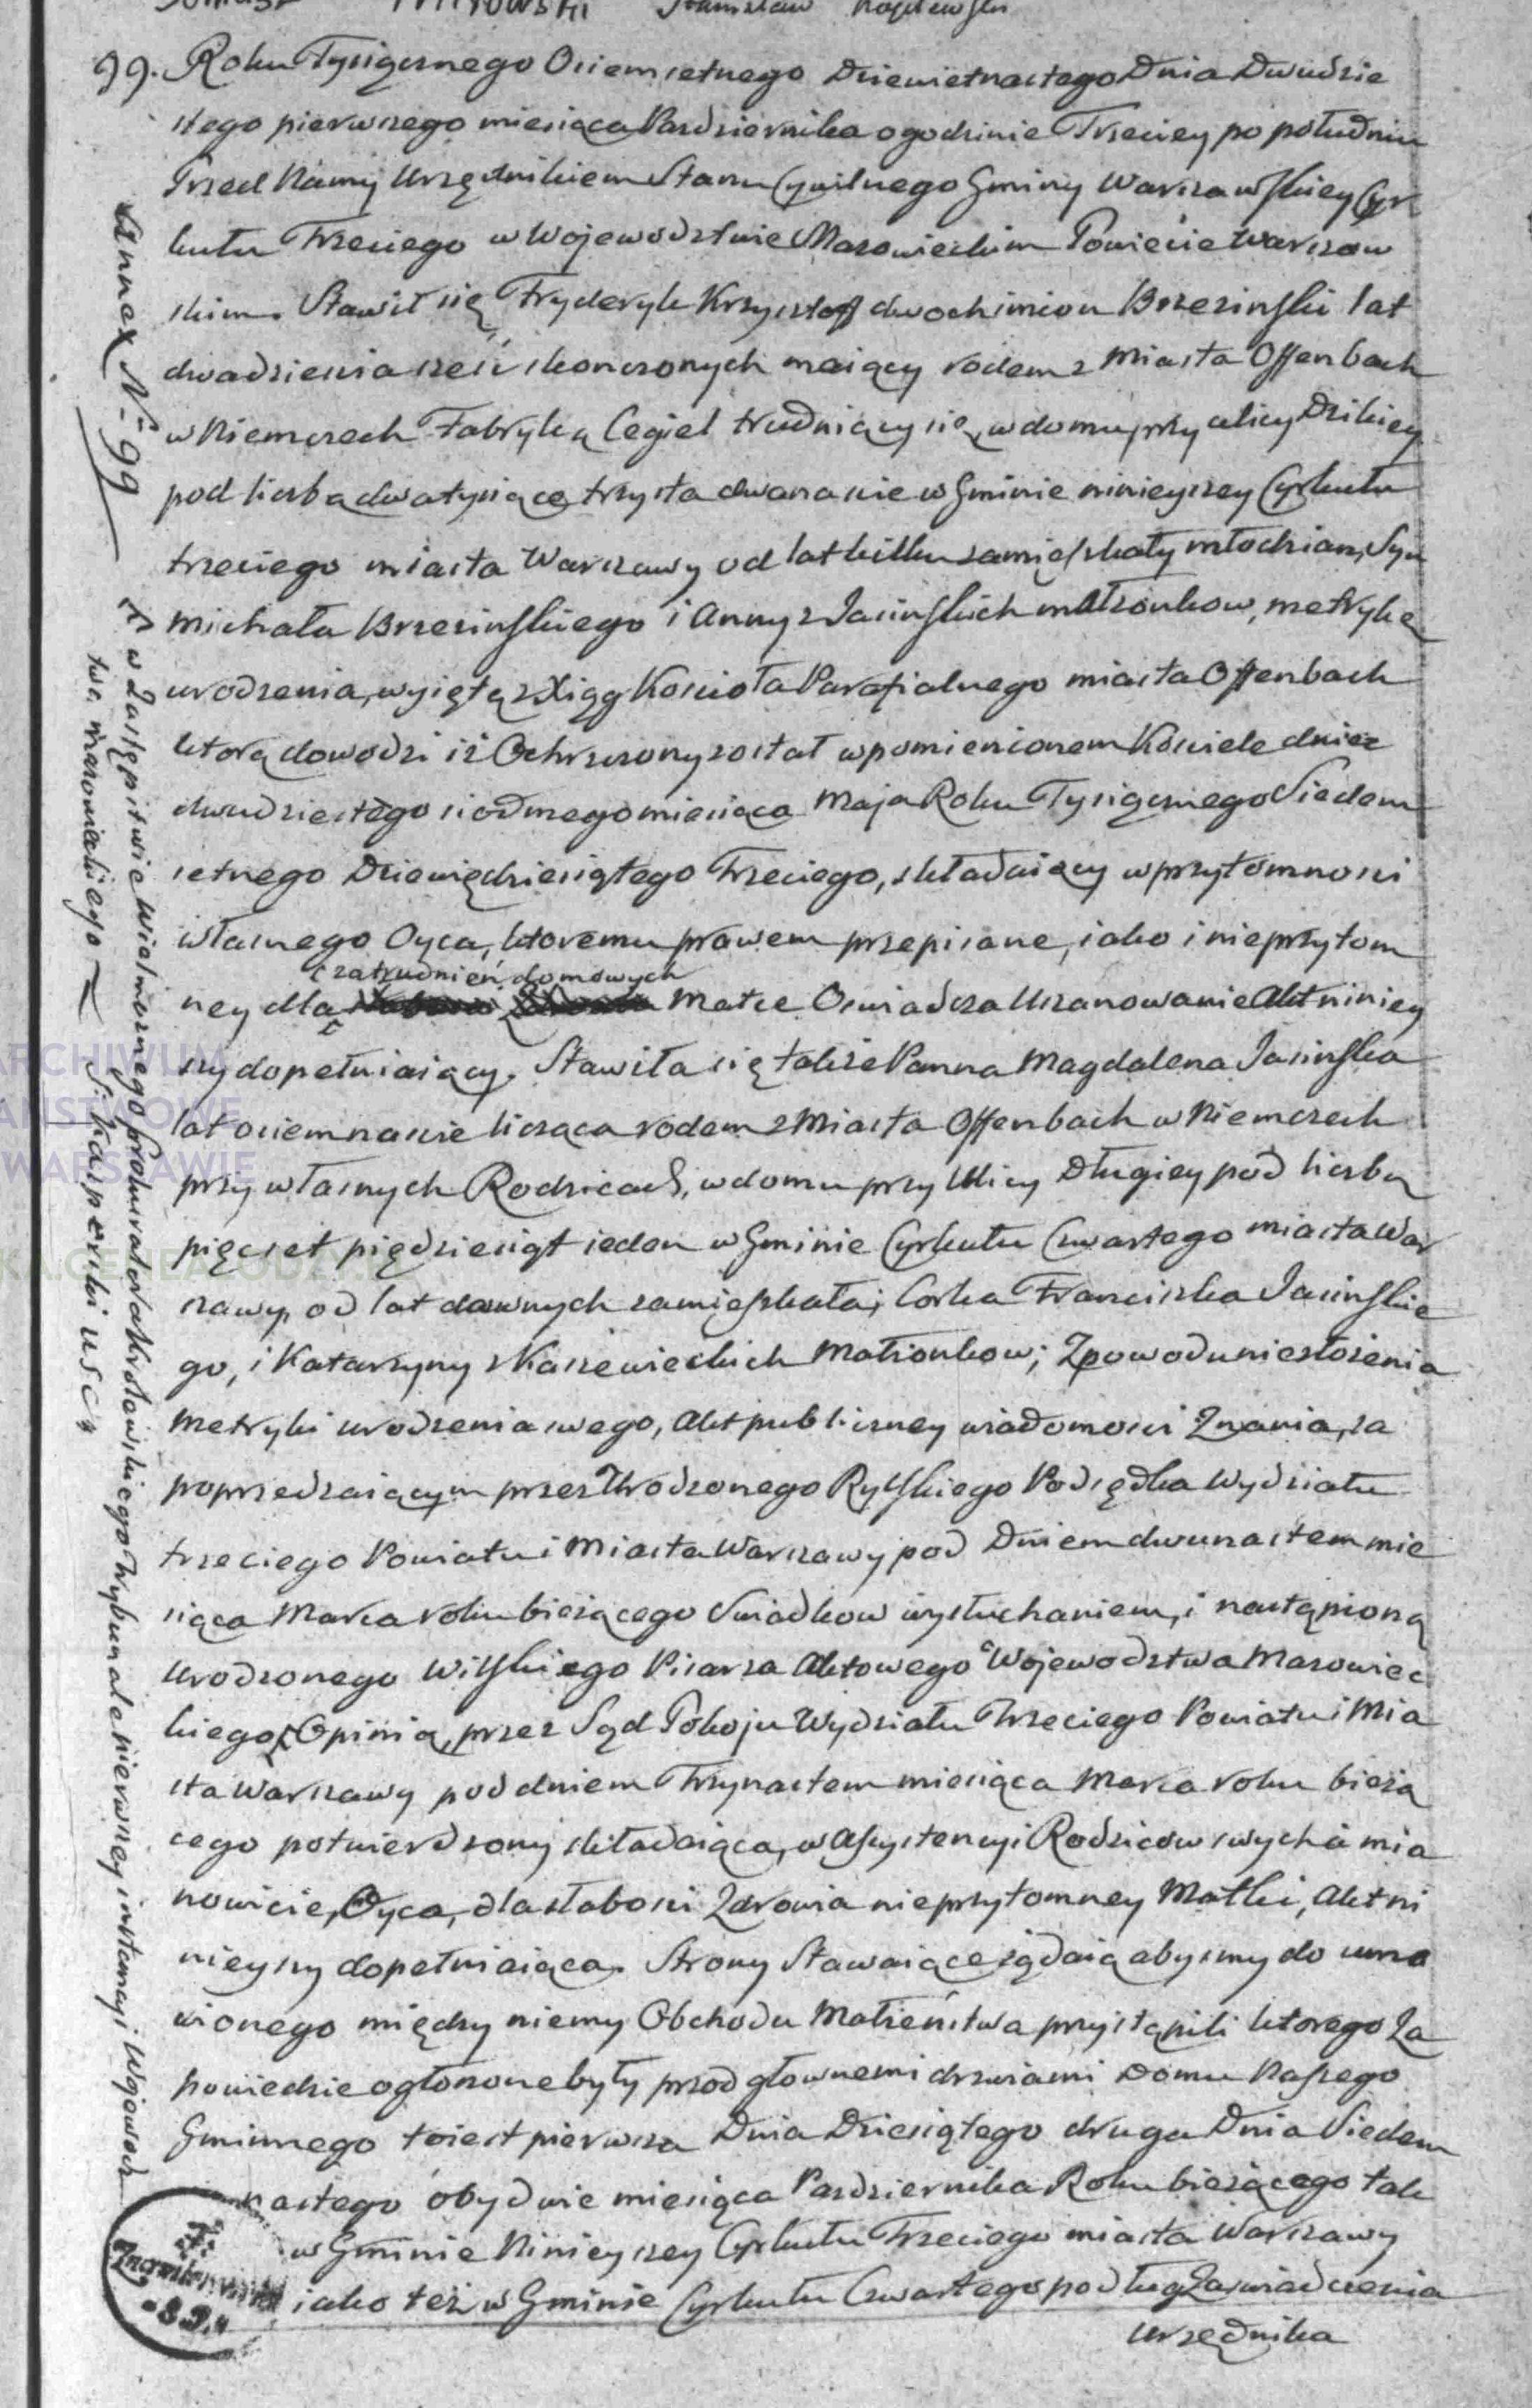 Stanisław
99. Roku Tysiącznego Osiemsetnego Dziewietnastego Dnia Dwudzie
stego pierwszego miesiąca Pazdziernika o godzinie Trzeciey po południu
Przed Namy Urzędnikiem Stanu Cywilnego Gminy Warszawskiey Cyr
kułu Trzeciego w Wojewodztwie Mazowieckim Powiecie Warszaw
skim. Stawił się Fryderyk Krzysztoff dwoch imion Brzezinski lat
dwadziescia szesc skonczonych maiący rodem z Miasta Offenbach
w Niemczech Fabryką Cegieł trudniący się, w domu przy ulicy Dzikiey
pod liczbą dwa tysiące trzysta dwanascie w Gminie ninieyszey Cyrkułu
trzeciego miasta Warszawy od lat kilku zamięszkały młodzian, Syn
Michała Brzezinskiego i Anny z Jasinskich małżonkow, metrykę
urodzenia, wyiętą z Xiąg Koscioła Parafialnego miasta Offenbach
ktorą dowodzi iż Ochrzczony został w pomienionem Kosciele dnia
dwudziestego siodmego miesiąca Maja Roku Tysiącznego Siedem
setnego Dziewięcdziesiątego Trzeciego, składaiący w przytomnosci
własnego Oyca, ktoremu prawem przepisane, iako i nieprzytom
zatrudnień domowych
ney dla Matce Oswiadcza Uszanowanie Akt niniey
szy dopełniaiący. Stawiła się także Panna Magdalena Jasinska
lat osiemnascie licząca rodem z Miasta Offenbach w Niemczech
przy własnych Rodzicach, w domu przy Ulicy Długiey pod liczbą
pięcset pięcdziesiąt ieden w Gminie Cyrkułu Czwartego miasta War
szawy, od lat dawnych zamięszkała; Corka Franciszka Jasinskie
go, i Katarzyny z Kaszewieckich Małżonkow; Z powodu niezłożenia
Metryki urodzenia swego, Akt publiczney wiadomosci Znania, za
poprzedzaiącym przez Urodzonego Rylskiego Podsędka Wydziału
trzeciego Powiatu i Miasta Warszawy pod Dniem dwunastem mie
siąca Marca roku bieżącego Swiadkow wysłuchaniem, i nastąpioną
Urodzonego Wilskiego Pisarza Aktowego Wojewodztwa Mazowiec
kiego Opinią, przez Sąd Pokoju Wydziału Trzeciego Powiatu i Mia
sta Warszawy pod dniem Trzynastem miesiąca Marca roku bieżą
cego potwierdzony składaiąca, w Assystencyi Rodzicow swych a mia
nowicie, Oyca, dla słabosci Zdrowia nieprzytomney Matki, Akt ni
nieyszy dopełniaiąca. Strony Stawaiące żądaią abysmy do umo
wionego między niemy Obchodu Małżeństwa przystąpili ktorego Za
powiedzie ogłoszone były przed głownemi drzwiami Domu Naszego
Gminnego to iest pierwsza Dnia Dziesiątego druga Dnia Siedem
nastego obydwie miesiąca Pazdziernika Roku bieżącego tak
w Gminie Ninieyszey Cyrkułu Trzeciego miasta Warszawy
iako też w Gminie Cyrkułu Czwartego podług Zaswiadczenia
Urzędnika
Annex Nº 99
w Zastępstwie Wielmożnego Prokuratora Krolewskiego Trybunale pierwszey instancyi Wojewodz
twa Mazowieckiego
ARCHIWUM
PAŃSTWOWE
W WARSZAWIE